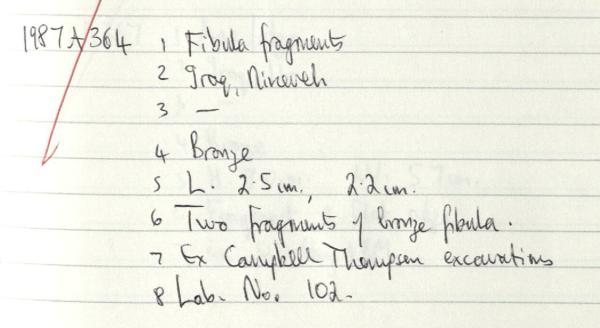 1987A364 1 Fibula fragments
2 Iraq, Nineveh
3 —
4 Bronze
5 L. 2.5cm., 2.2cm.
6 Two fragments of bronze fibula.
7 Ex Campbell Thompson excavations
8 Lab. No. 102.